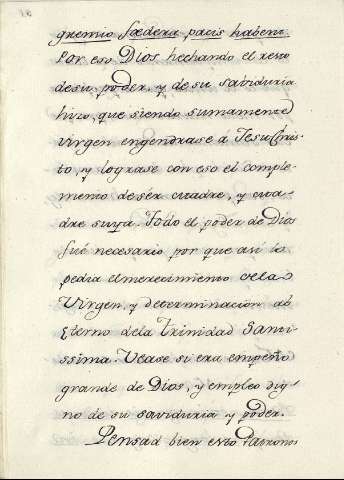 16
gremio fœdera pacis habent.
Por eso Dios hechando el resto
desu poder, y de su saviduria
hizo, que siendo sumamente
virgen engendrase a Jesu Chris-
to, y lograse con eso el comple-
mento de sér madre, y ma-
dre suya. Todo el poder de Dios
fué necesario por que asi lo
pedia el merecimiento dela
Virgen, y determinacion ab
Eterno dela Trinidad Santi-
ssima. Véase si era empeño
grande de Dios, y empleo dig-
no de su saviduria y poder.
Pensad bien esto Patronos